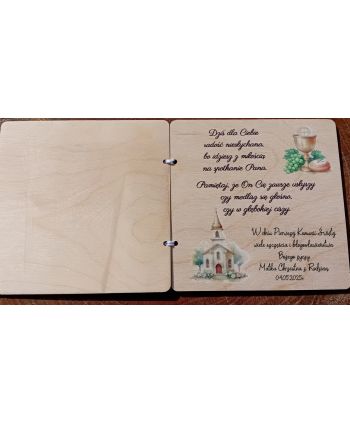 Dziś dla Ciebie
radość niesłychana,
bo idziesz z miłością
na spotkanie Pana.
Pamiętaj, że On Cię zawsze usłyszy
czy modlisz się głośno,
czy w głębokiej ciszy.
W dniu Pierwszej Komunii Świętej
wiele szczęścia i błogosławieństwa
Bożego życzy
Matka Chrzestna z Rodziną
04.05.2025r.